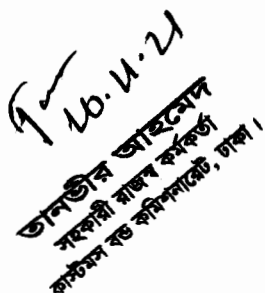 10.11.21
তানভীর আহমেদ
সহকারী রাজস্ব কর্মকর্তা
কাস্টমস বন্ড কমিশনারেট, ঢাকা।